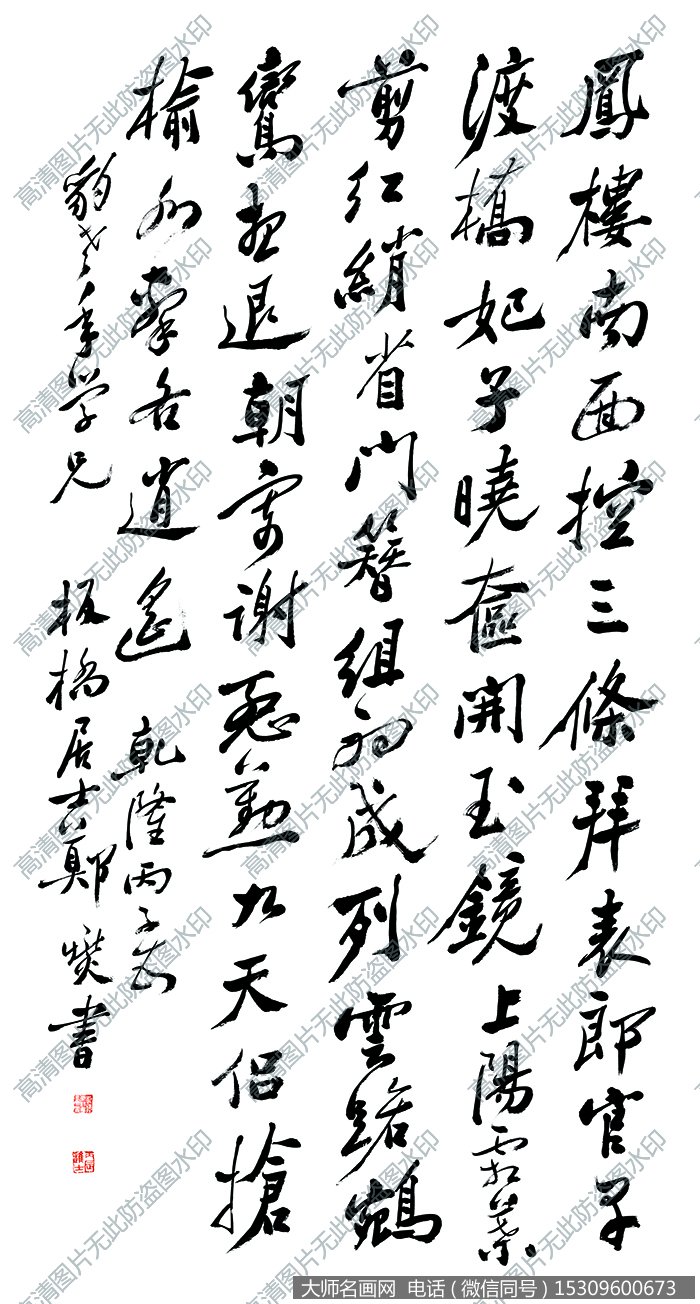 鳳樓南面控三條拜表郎官早
渡橋妃子曉奩開玉鏡上陽霜葉
剪紅綃省門簪組初成列雲路鵷
鸞想退朝寄謝慇懃九天侶搶
榆水擊各逍遙 乾隆丙子歲
豹老年学兄 板橋居士鄭燮書
高清图片无此防盗图水印
大师名画网 电话（微信同号）15309600673